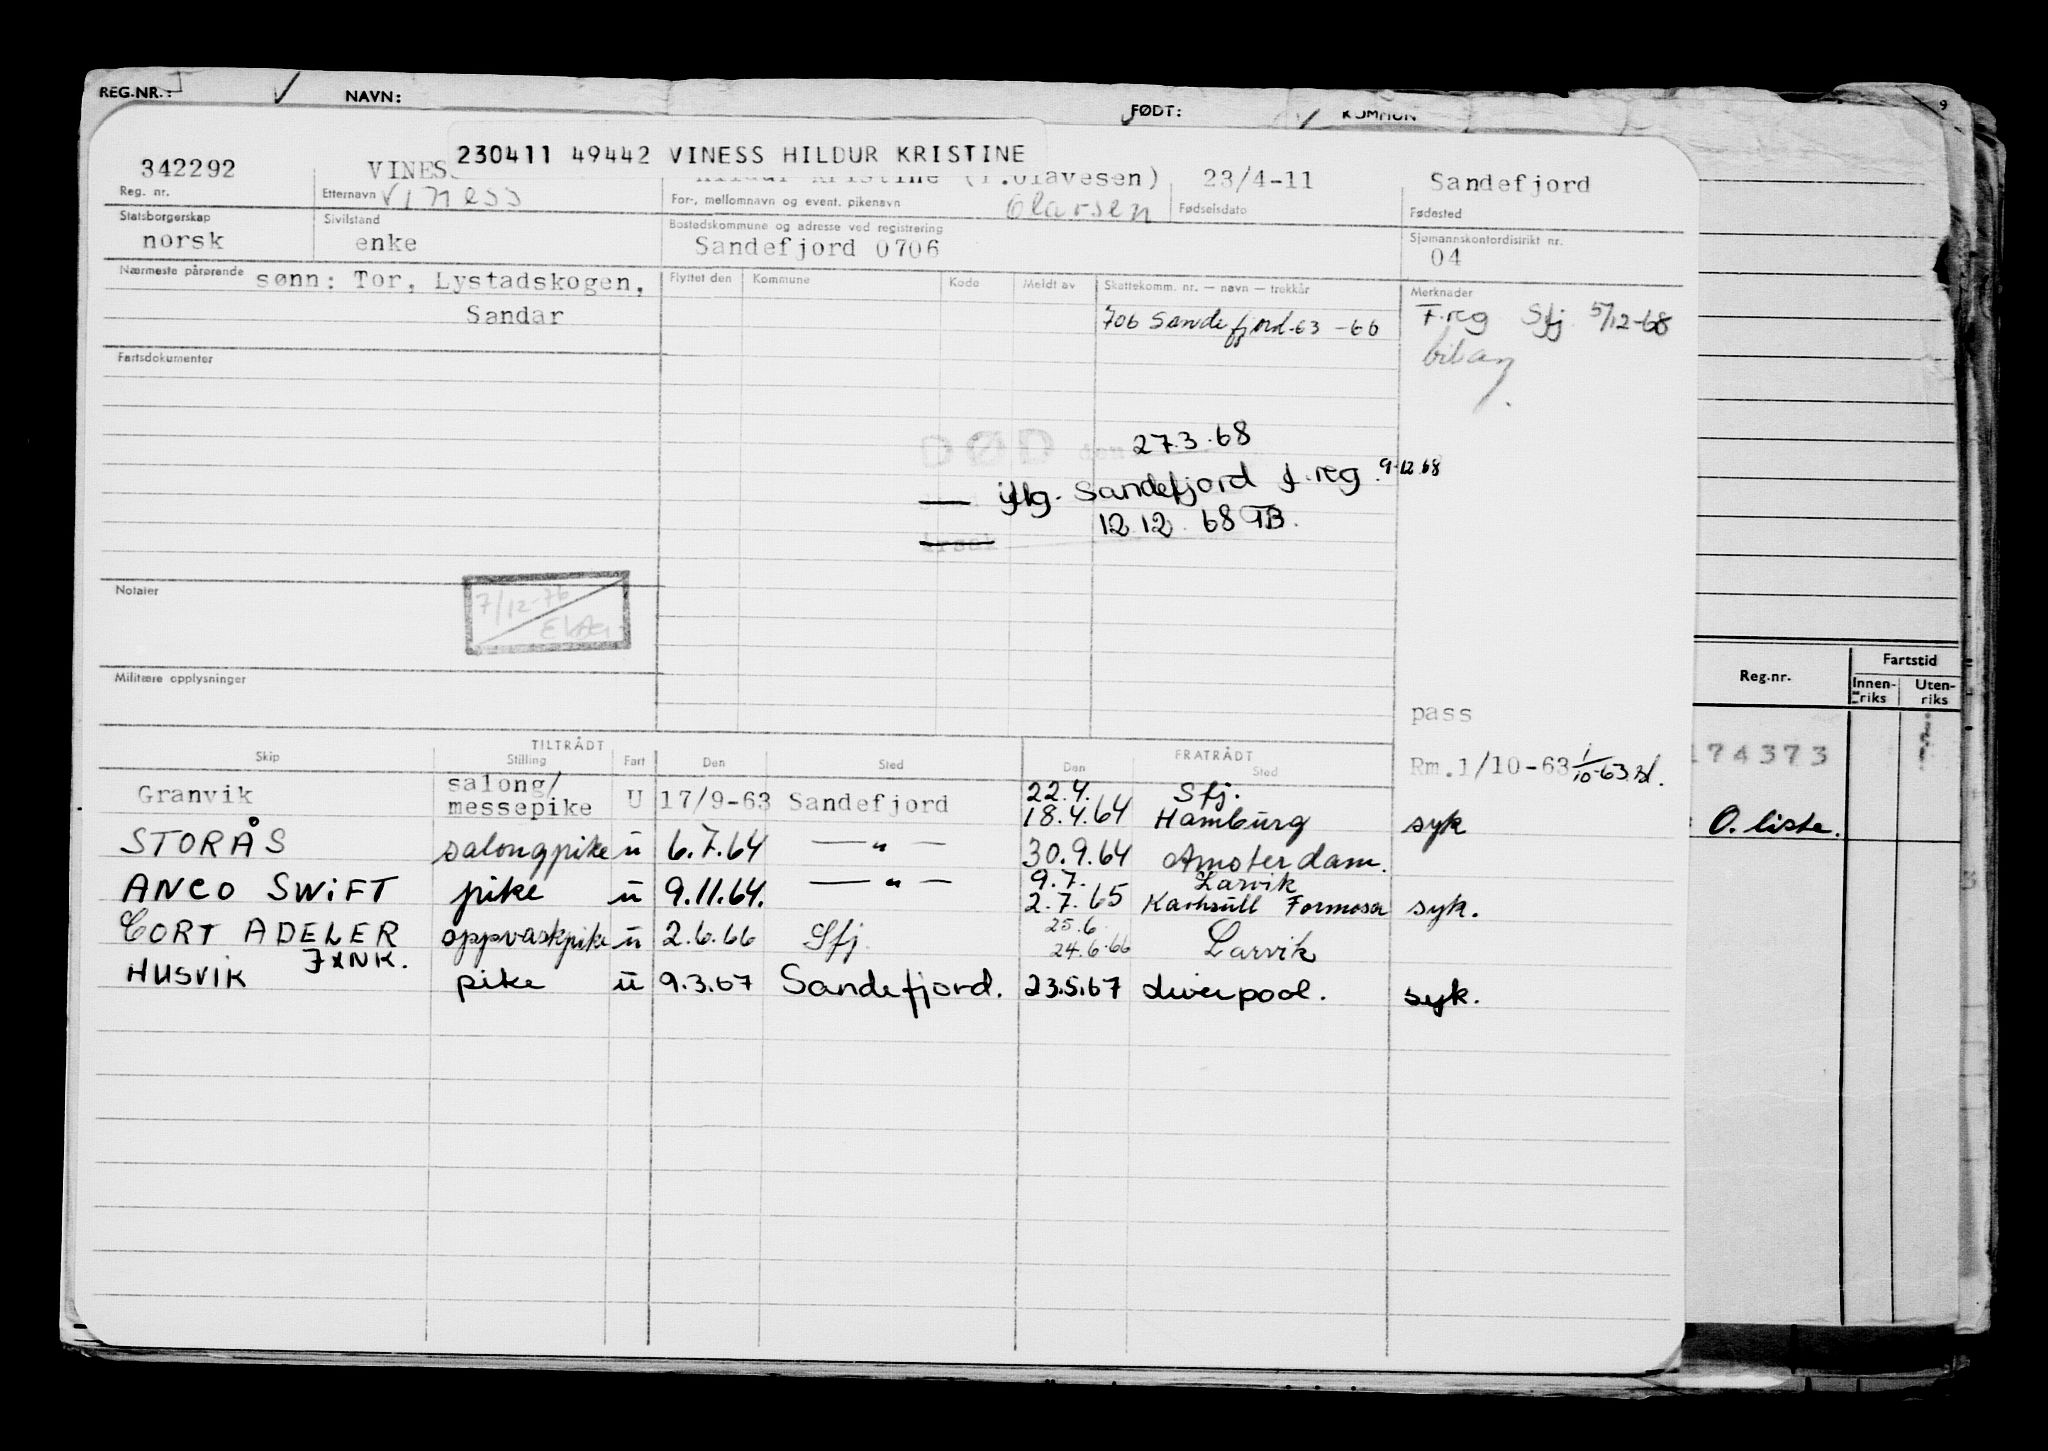 REG.NR.: I
NAVN:
FØDT:
KOMMUN
9
230411 49442 VINESS HILDUR KRISTINE
342292
VINES
Kristine (f.Olavesen)
23/4-11
Sandefjord
Reg. nr.
Etternavn
Viness
For-, mellomnavn og event. pikenavn
Olavsen
Fødselsdato
Fødested
Statsborgerskap
norsk
Sivilstand
enke
Bostedskommune og adresse ved registrering
Sandefjord 0706
Sjømannskontordistrikt nr.
04
Nærmeste pårørende
sønn: Tor, Lystadskogen,
Sandar
Flyttet den
Kommune
Kode
Meldt av
Skattekomm. nr. — navn — trekkår
706 Sandefjord-63 -66
Merknader
F.reg Sfj. 5/12-68
Fartsdokumenter
DØD den 27.3.68
— iflg. Sandefjord f.reg. 9.12.68
12.12.68 TB.
Notater
7/12-76
Militære opplysninger
pass
Rm.1/10-63 1/10-63
Reg.nr.
Fartstid
Innen-
riks
Uten-
riks
174373
O. liste.
3
TILTRÅDT
FRATRÅDT
Skip
Stilling
Fart
Den
Sted
Den
Sted
Granvik salong/messepike U 17/9-63 Sandefjord 22.4. Sfj.
18.4.64 Hamburg syk
STORÅS salongpike u 6.7.64 — " — 30.9.64 Amsterdam.
ANCO SWIFT pike u 9.11.64. — " — 9.7. Larvik
2.7.65 Kaohsull Formosa syk.
CORT ADELER oppvaskpike u 2.6.66 Sfj. 25.6.
24.6.66 Larvik
HUSVIK pike u 9.3.67 Sandefjord. 23.5.67 Liverpool. syk.